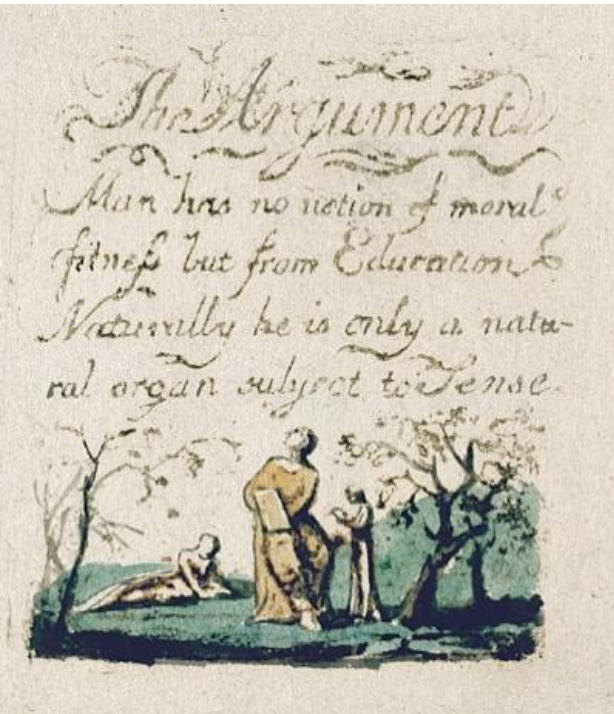 The Argument
Man has no notion of moral
fitneſs but from Education
Naturally he is only a natu-
ral organ subject to Sense.